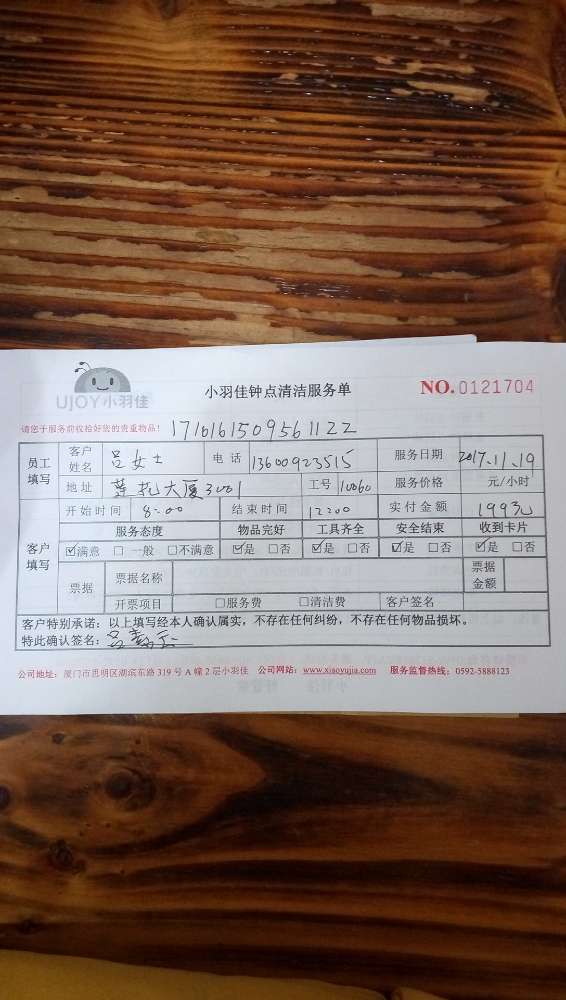 UJOY小羽佳
小羽佳钟点清洁服务单
NO.0121704
请您于服务前收检好您的贵重物品!
1716161509561122
员工填写 客户姓名 吕女士 电话 13600923515 服务日期 2017.11.19
地址 莲花大厦3001 工号 10060 服务价格 元/小时
开始时间 8:00 结束时间 12:00 实付金额 1993元
客户填写 服务态度 物品完好 工具齐全 安全结束 收到卡片
☑满意 □一般 □不满意 ☑是 □否 ☑是 □否 ☑是 □否 ☑是 □否
票据 票据名称 票据金额
开票项目 □服务费 □清洁费 客户签名
客户特别承诺:以上填写经本人确认属实,不存在任何纠纷,不存在任何物品损坏。
特此确认签名:吕
公司地址:厦门市思明区湖滨东路319号A幢2层小羽佳 公司网站:www.xiaoyujia.com 服务监督热线:0592-5888123